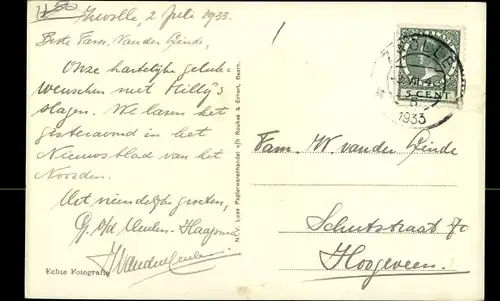 Zwolle, 2 Juli 1933.
Beste Fam. Van der Linde,
Onze hartelijke geluk-
wenschen met Willy's
slagen. We lazen het
gisteravond in het
Nieuwsblad van het
Noorden.
Met vriendelijke groeten,
G. v/d Meulen-Haapsma
J Vandermeulen
Echte Fotografie
N.V. Luxe Papierwarenhandel v/h Roukes & Erhart, Baarn.
ZWOLLE
5 CENT
1933
Fam. W. van der Linde
Schutstraat 7c
Hoogeveen.